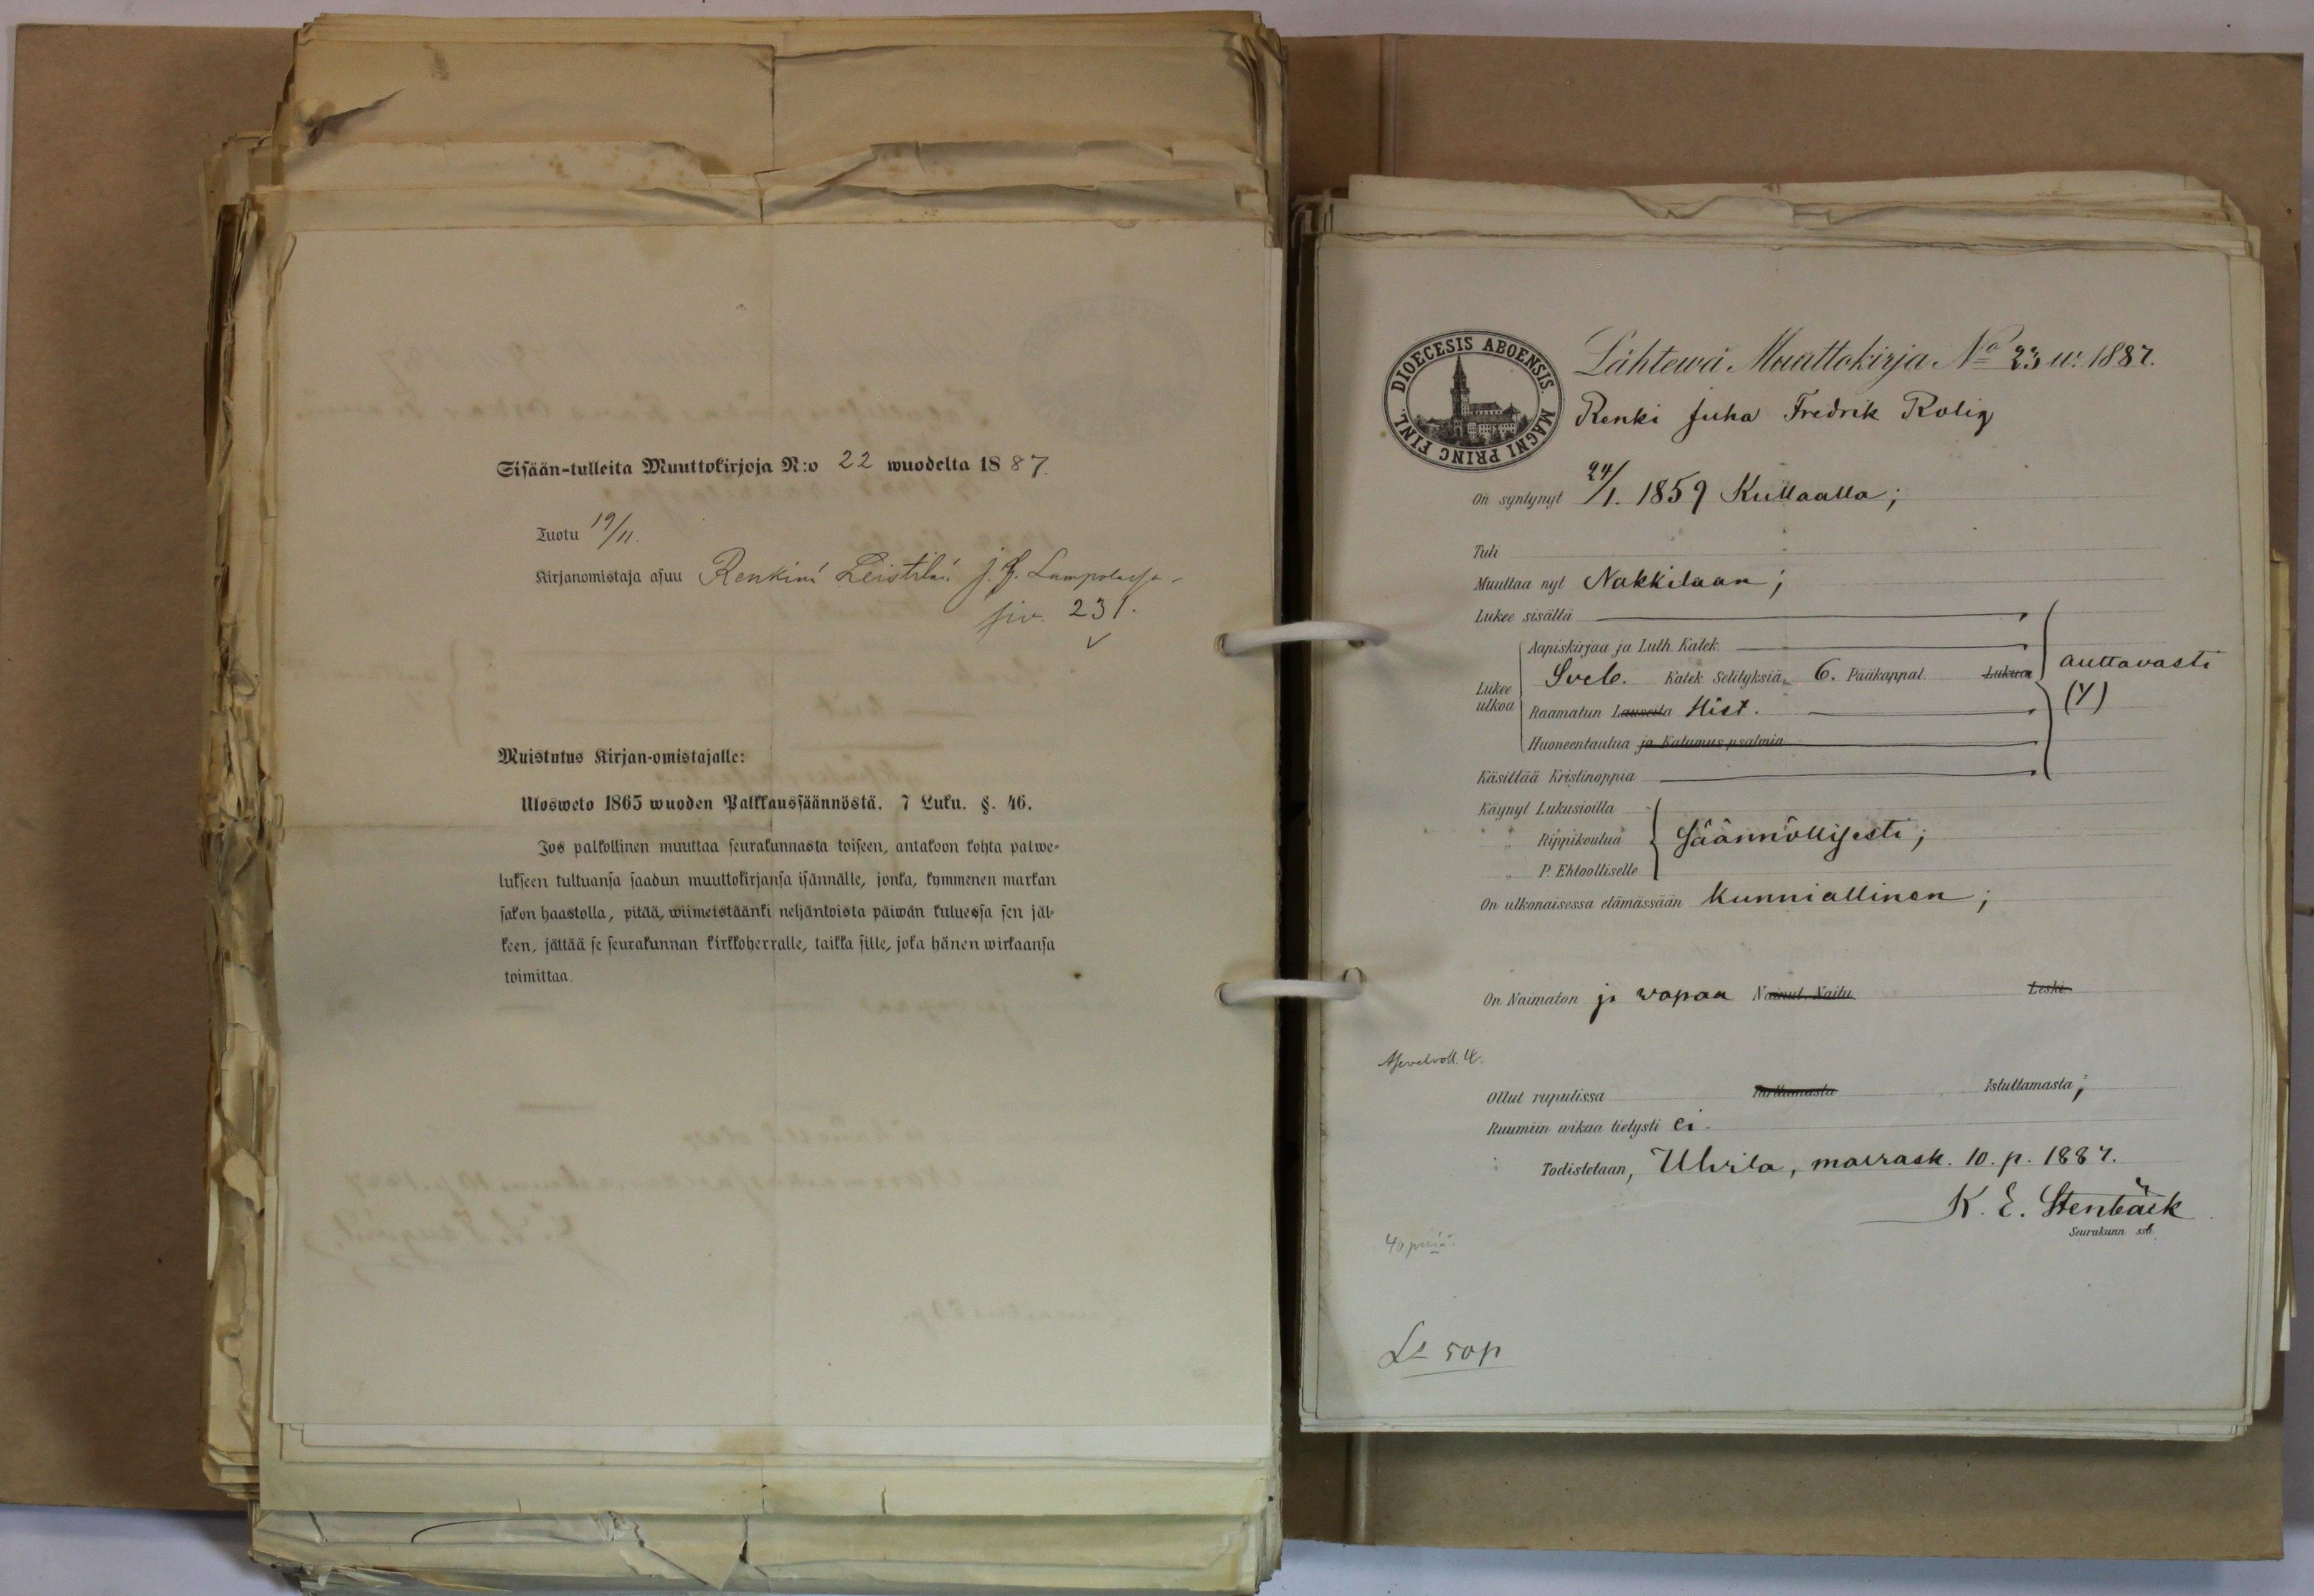 Sisään-tulleita Muuttokirjoja N:o 22 wuodelta 1887.
Tuotu 19/11.
Kirjanomistaja asuu Renkinä Leistilä J. H. Lampolassa
siv. 231.
Muistutus Kirjan-omistajalle:
Ulosweto 1865 wuoden Palkkaussäännöstä. 7 Luku. §. 46.
Jos palkollinen muuttaa seurakunnasta toiseen, antakoon kohta palwe-
lukseen tultuansa saadun muuttokirjansa isännälle, jonka, kymmenen markan
sakon haastolla, pitää, wiimeistäänki neljäntoista päiwän kuluessa sen jäl-
keen, jättää se seurakunnan kirkkoherralle, taikka sille, joka hänen wirkaansa
toimittaa.
DIOECESIS ABOENSIS. MAGNI PRINC FINL.
Lähtewä Muuttokirja No 23 w. 1887.
Renki Juha Fredrik Rolig
On syntynyt 24/1. 1859 Kullaalla;
Tuli
Muuttaa nyt Nakkilaan;
Lukee sisältä
Aapiskirjaa ja Luth. Katek.
Lukee ulkoa
Sveb. Katek. Selityksiä 6. Pääkappal. Lukua
auttavasti
(4)
Raamatun Lauseita Hist.
Huoneentaulua ja Katumus psalmia
Käsittää Kristinoppia
Käynyt Lukusioilla
" Rippikoulua säännöllisesti;
" P. Ehtoolliselle
On ulkonaisessa elämässään kunniallinen;
On Naimaton ja wapaa Nainut. Naitu Leski
Asevelvoll. 4.
Ollut rupulissa Tarttumasta Istuttamasta;
Ruumiin wikaa tietysti ei.
Todistetaan, Ulvila, marrask. 10. p. 1887.
K. E. Stenbäck
Seurakunn ssb.
40 pniä
Ls 50p